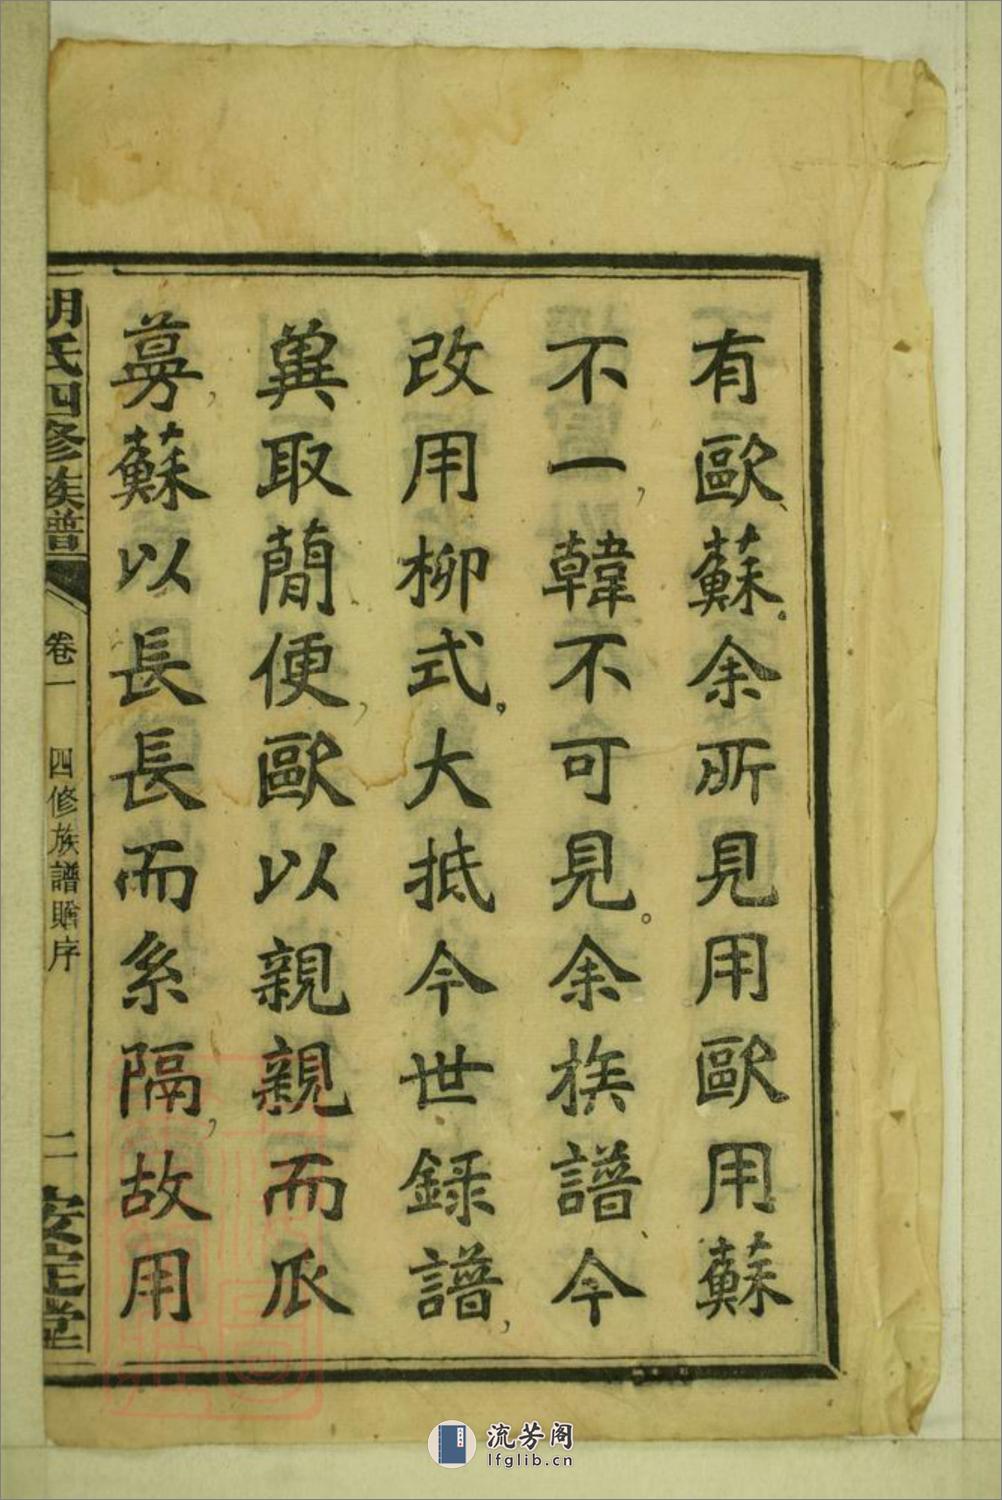 有歐、蘇。余所見用歐用蘇
不一，韓不可見。余族譜、今
改用柳式。大抵今世録譜，
冀取簡便，歐以親親而派
蒡，蘇以長長而系隔，故用
胡氏四修族譜
卷一
四修族譜贈序
二
安定堂
流芳阁
lfglib.cn